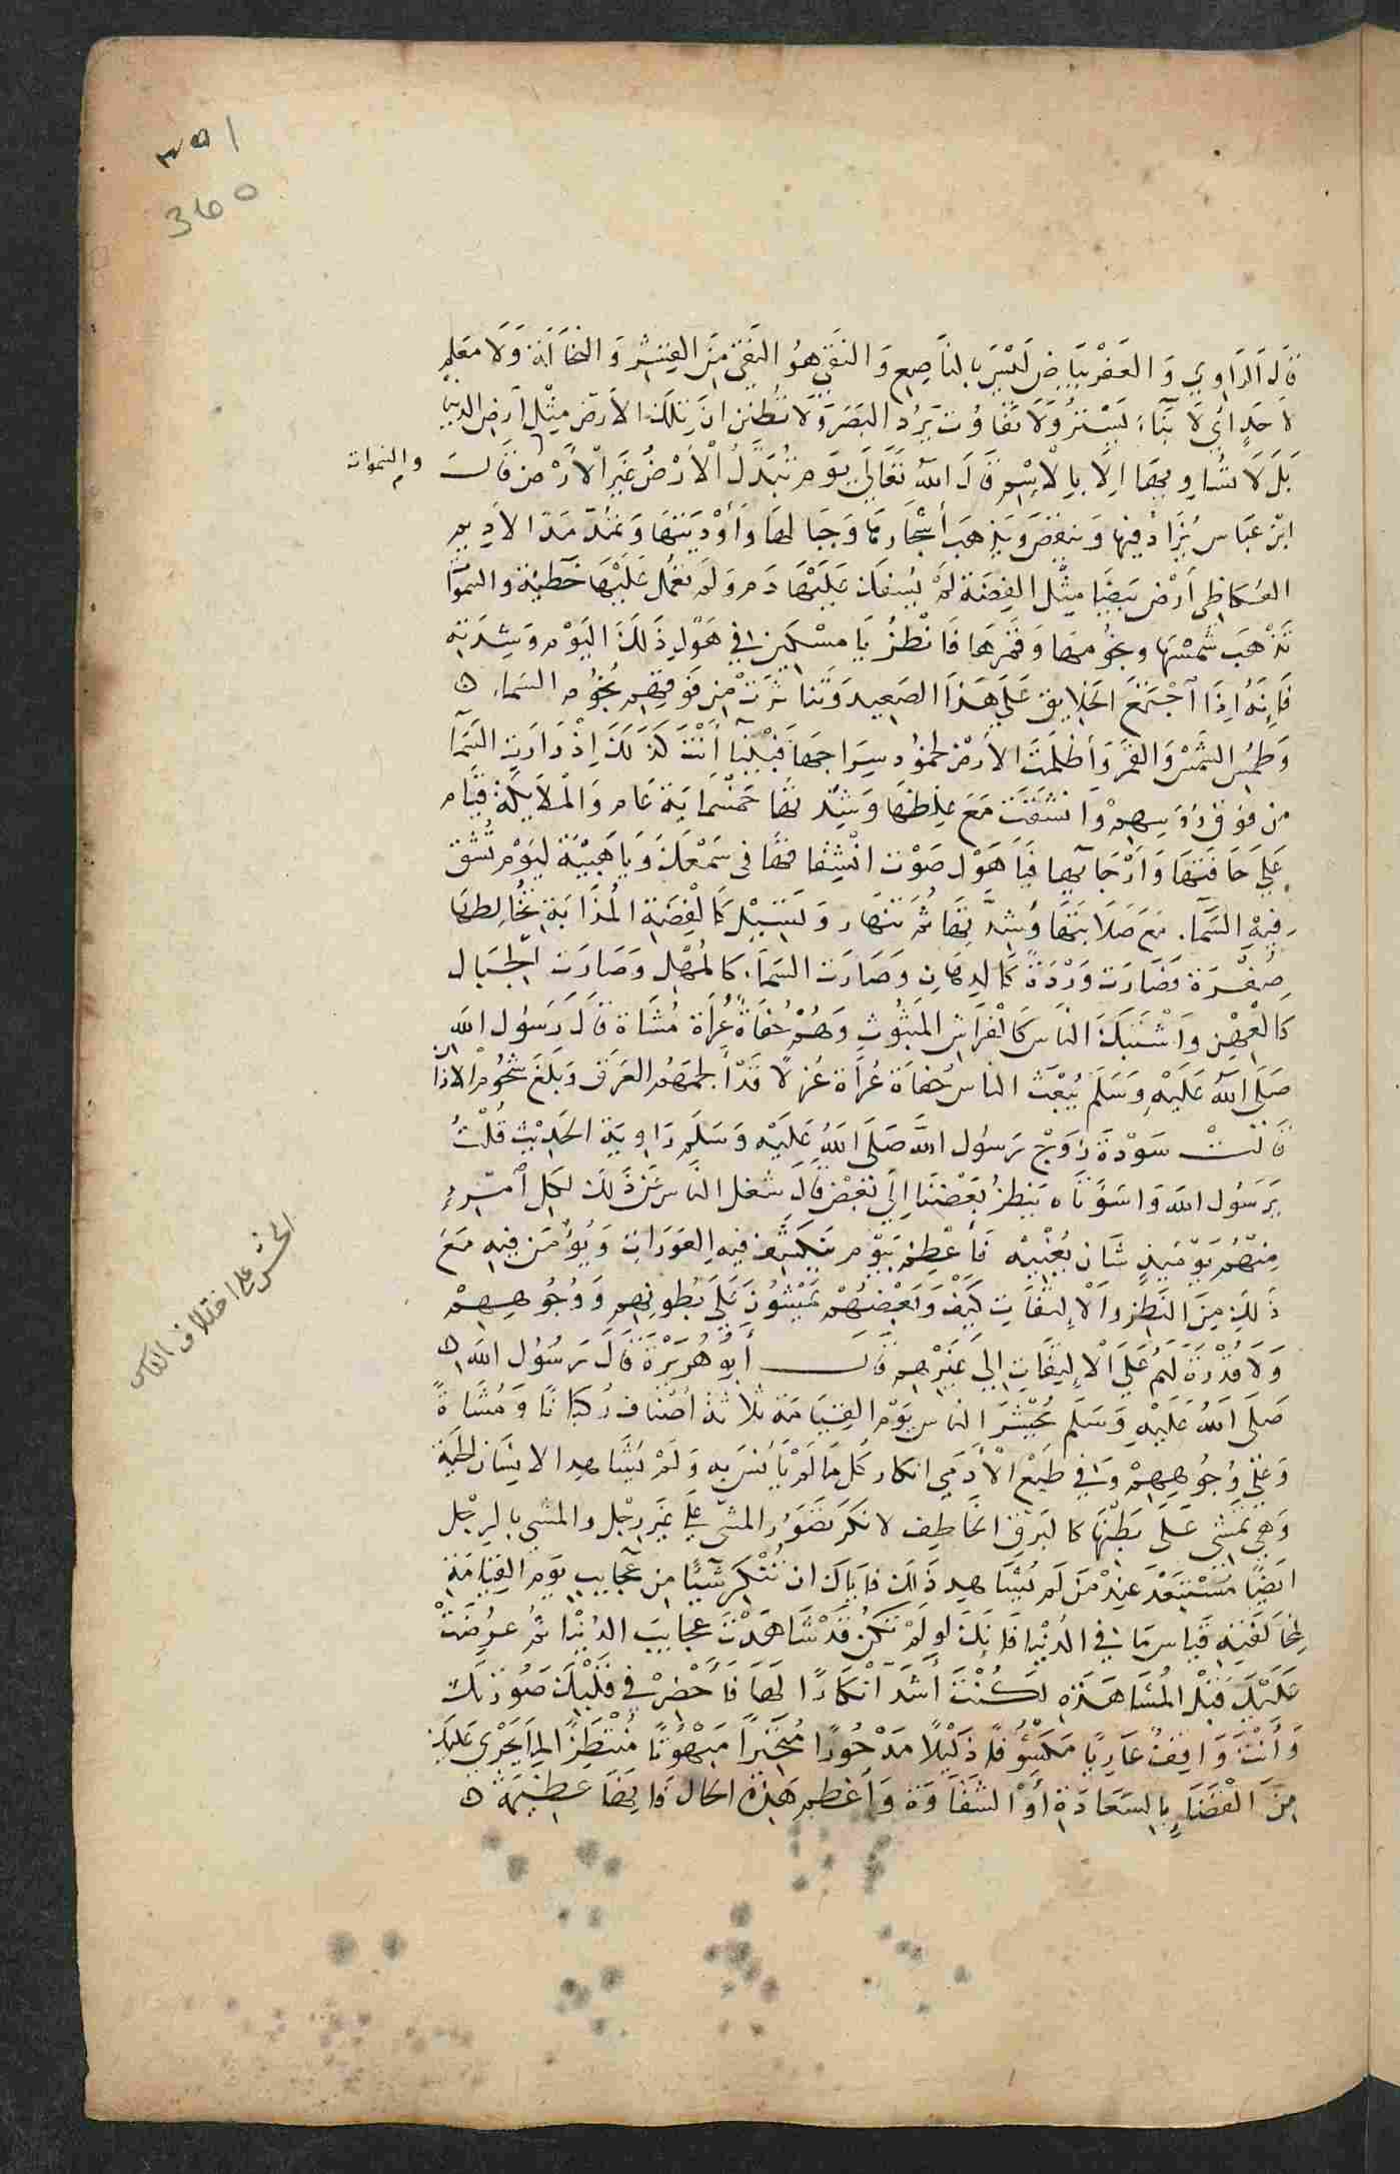 ٣٥١
360
قال الراوي والعفر بياض ليس بالناصع والنقي هو النقي من القشر والنخالة ولا معلم
لاحد اي لا بناء يستر ولا تفاوت يرد البصر ولا تظنن ان تلك الارض مثل ارض الدنيا
بل لا تساويها الا بالاسم قال الله تعالى يوم تبدل الارض غير الارض والسموات قال
ابن عباس يزاد فيها وينقص ويذهب أشجارها وجبالها وأوديتها وتمد مد الاديم
العكاظي أرض بيضا مثل الفضة لم يسفك عليها دم ولم تعمل عليها خطيئة والسموات
تذهب شمسها ونجومها وقمرها فانظر يا مسكين في هول ذلك اليوم وشدته
فإنه إذا اجتمع الخلايق على هذا الصعيد وتناثرت من فوقهم نجوم السماء ه
وطمس الشمس والقمر وأظلمت الارض لخمود سراجها فبينا أنت كذلك إذ دارت السما
من فوق رؤسهم وانشقت مع غلظها وشدتها خمسماية عام والملايكة قيام
على حافتها وأرجايها فيا هول صوت انشقاقها في سمعك ويا هيبة ليوم تنشق
فيه السماء مع صلابتها وشدتها ثم تنهار وتسيل كالفضة المذابة تخالطها
صفرة فصارت وردة كالدهان وصارت السماء كالمهل وصارت الجبال
كالعهن واشتبك الناس كالفراش المبثوث وهم حفاة عراة مشاة قال رسول الله
صلى الله عليه وسلم يبعث الناس حفاة عراة غرلا قد ألجمهم العرق وبلغ شحوم الاذان
قالت سودة زوج رسول الله صلى الله عليه وسلم راوية الحديث قلت
يرسول الله واسوءتاه ينظر بعضنا إلى بعض قال شغل الناس عن ذلك لكل امرء
منهم يومئذ شان يغنيه فأعظم بيوم تنكشف فيه العورات ويؤمن فيه مع
ذلك من النظر والالتفات كيف وبعضهم يمشون على بطونهم ووجوههم
ولا قدرة لهم على الالتفات إلى غيرهم قال أبو هريرة قال رسول الله ه
صلى الله عليه وسلم يحشر الناس يوم القيامة ثلاثة اصناف ركبانا ومشاة
وعلى وجوههم وفي طبع الآدمي انكار كل ما لم يأنس به ولم يشاهد الانسان الحية
وهي تمشي على بطنها كالبرق الخاطف لانكر تصور المشي على غير رجل والمشي بالرجل
ايضا مستبعد عند من لم يشاهد ذلك فاياك ان تنكر شيئا من عجايب يوم القيامة
لمخالفته قياس ما في الدنيا فإنك لو لم تكن قد شاهدت عجايب الدنيا ثم عرضت
عليك قبل المشاهدة لكنت أشد انكارا لها فأحضر في قلبك صورتك
وأنت واقف عاريا مكشوفا ذليلا مدحورا متحيرا مبهوتا منتظرا لما يجري عليك
من القضاء بالسعادة أو الشقاوة وأعظم هذه الحال فإنها عظيمة ه
الحشر على اختلاف الناس